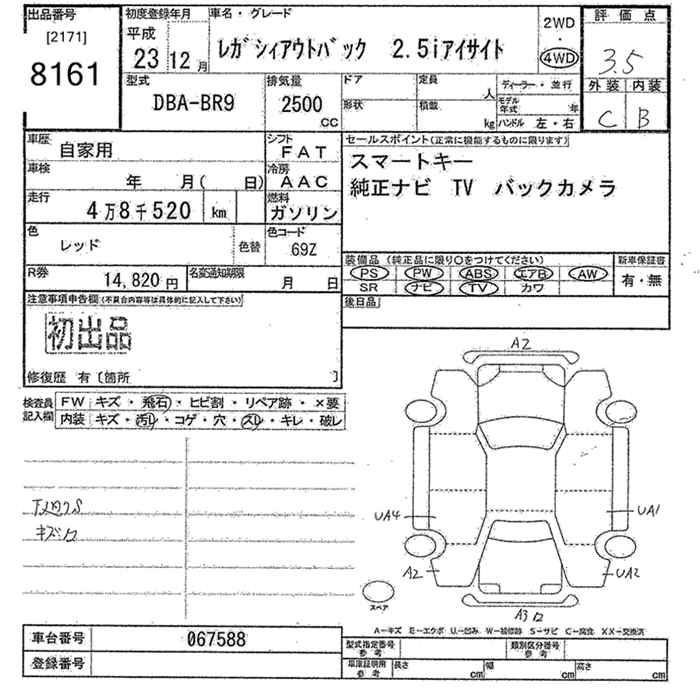 出品番号
[2171]
8161
初度登録年月
平成
23
12
月
車名・グレード
レガシィアウトバック 2.5iアイサイト
2WD
4WD
評価点
3.5
外装
内装
C
B
型式
DBA-BR9
排気量
2500
CC
ドア
形状
定員
人
積載
kg
ディーラー・並行
モデル年式
年
ハンドル 左・右
車歴
自家用
シフト
FAT
車検
年 月( 日)
冷房
AAC
走行
4万8千520
km
燃料
ガソリン
色
レッド
色替
色コード
69Z
R券
14,820 円
名変通知期限
月 日
セールスポイント(正常に機能するものに限ります)
スマートキー
純正ナビ TV バックカメラ
装備品 (純正品に限り○をつけてください)
PS PW ABS エアB AW
SR ナビ TV カワ
新車保証書
有・無
後日品
注意事項申告欄(不具合内容等は具体的に記入して下さい)
初出品
修復歴 有〔箇所 〕
検査員
記入欄
FW キズ・飛石・ヒビ割・リペア跡・×要
内装 キズ・汚れ・コゲ・穴・スレ・キレ・破レ
キズ
A2
UA4
UA1
A2
UA2
A3
スペア
A-キズ E-エクボ U-凹み W-補修跡 S-サビ C-腐食 XX-交換済
車台番号
067588
登録番号
型式指定番号
参考
類別区分番号
参考
車庫証明用
参考
長さ
cm
幅
cm
高さ
cm